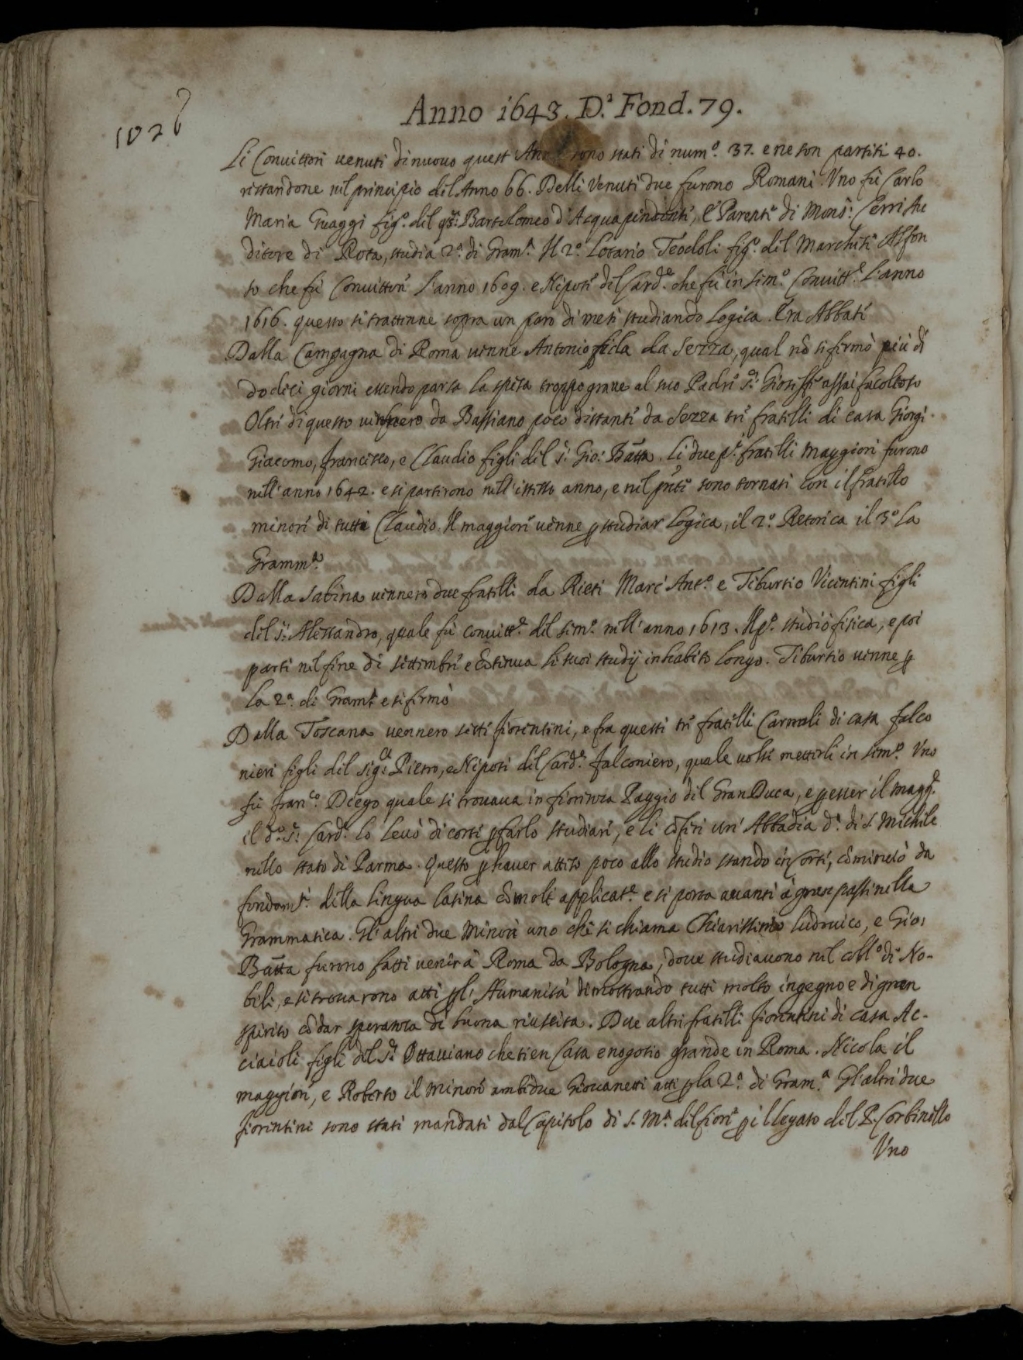 1026
Anno 1643. D.ª Fond. 79.
Li Convittori venuti di nuovo quest Anno sono stati di num.º 37. e ne son partiti 40.
restandone nel principio del Anno 66. Delli Venuti due furono Romani. Uno fù Carlo
Maria Guaggi fig.º del Bartolomeo d'Acquapendente, e Parente di Mons.r Cerri Au
ditore di Rota, studiò 2.ª di Gram.ª Il 2.º Lotario Teodoli fig.º del Marchese Alfon
so che fù Convittore l'anno 1609. e Nipote del Card.le che fù in Sem.º Convitt.e l'anno
1616. questo si trattenne sopra un paro di mesi studiando Logica. Era Abbate
Dalla Campagna di Roma venne Antonio da Sezza, qual nõ si fermò più di
dodeci giorni essendo parsa la spesa troppo grave al suo Padre assai facoltoso
Oltre di questo vennero da Bassiano poco distante da Sezza tre fratelli di casa Giorgi.
Giacomo, francesco, e Claudio figli del S.r Gio: Batta. Li due p.i fratelli maggiori furono
nell'anno 1642. e si partirono nell'istesso anno, e nel pñte sono tornati con il fratello
minore di tutti Claudio. Il maggiore venne p studiar Logica, il 2.º Retorica il 3.º La
Gramm.ª
Dalla Sabina vennero due fratelli da Rieti Marc'Ant.º e Tiburtio Vicentini figli
del S.r Alessandro, quale fù convitt.e del Sem.º nell'anno 1613. Il p.º studiò fisica, e poi
partì nel fine di settembre e cõtinua li suoi studij in habito Longo. Tiburtio venne p
la 2.ª di Gram.ª e si fermò
Dalla Toscana vennero sette fiorentini, e fra questi tre fratelli Carnali di casa falco
nieri figli del Sig.r Pietro, e Nipoti del Card.le falconiero, quale volse metterli in Sem.º Uno
fù fran.º Diego quale si trovava in fiorenza Paggio del Gran Duca, e p esser il magg.e
il d.º S.r Card.le lo levò di corte p farlo studiare, e li cõferì un'Abbadia d.ª di S. Michele
nello stato di Parma. Questo p haver atteso poco allo studio stando in Corte, cominciò da
fondam.ti della Lingua latina è molt'applicat.º e si porta avanti à gran passi nella
Grammatica. Gl'altri due Minori uno che si chiama Chiarissimo Ludovico, e Gio:
Batta furono fatti venire à Roma da Bologna, dove studiavono nel coll.º di No-
bili, e si trovarono atti p l'Humanità dimostrando tutti molto ingegno e di gran
spirito cõ dar speranza di buona riuscita. Due altri fratelli fiorentini di casa Ac-
ciaioli figli del S.r Ottaviano che tien Casa e negotio grande in Roma. Nicola il
maggiore, e Roberto il minore ambidue Giovanetti atti p la 2.ª di Gram.ª Gl'altri due
fiorentini sono stati mandati dal Capitolo di S. M.ª del fiore p il legato del P. Corbinello
Uno